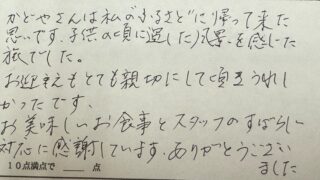 かどやさんは私の"ふるさと"に帰って来た
思いです。子供の頃に過した風景を感じた
旅でした。
お迎えもとても親切にして頂きうれし
かったです。
お美味しいお食事とスタッフのすばらしい
対応に感謝しています。ありがとうござい
ました
10点満点で 点